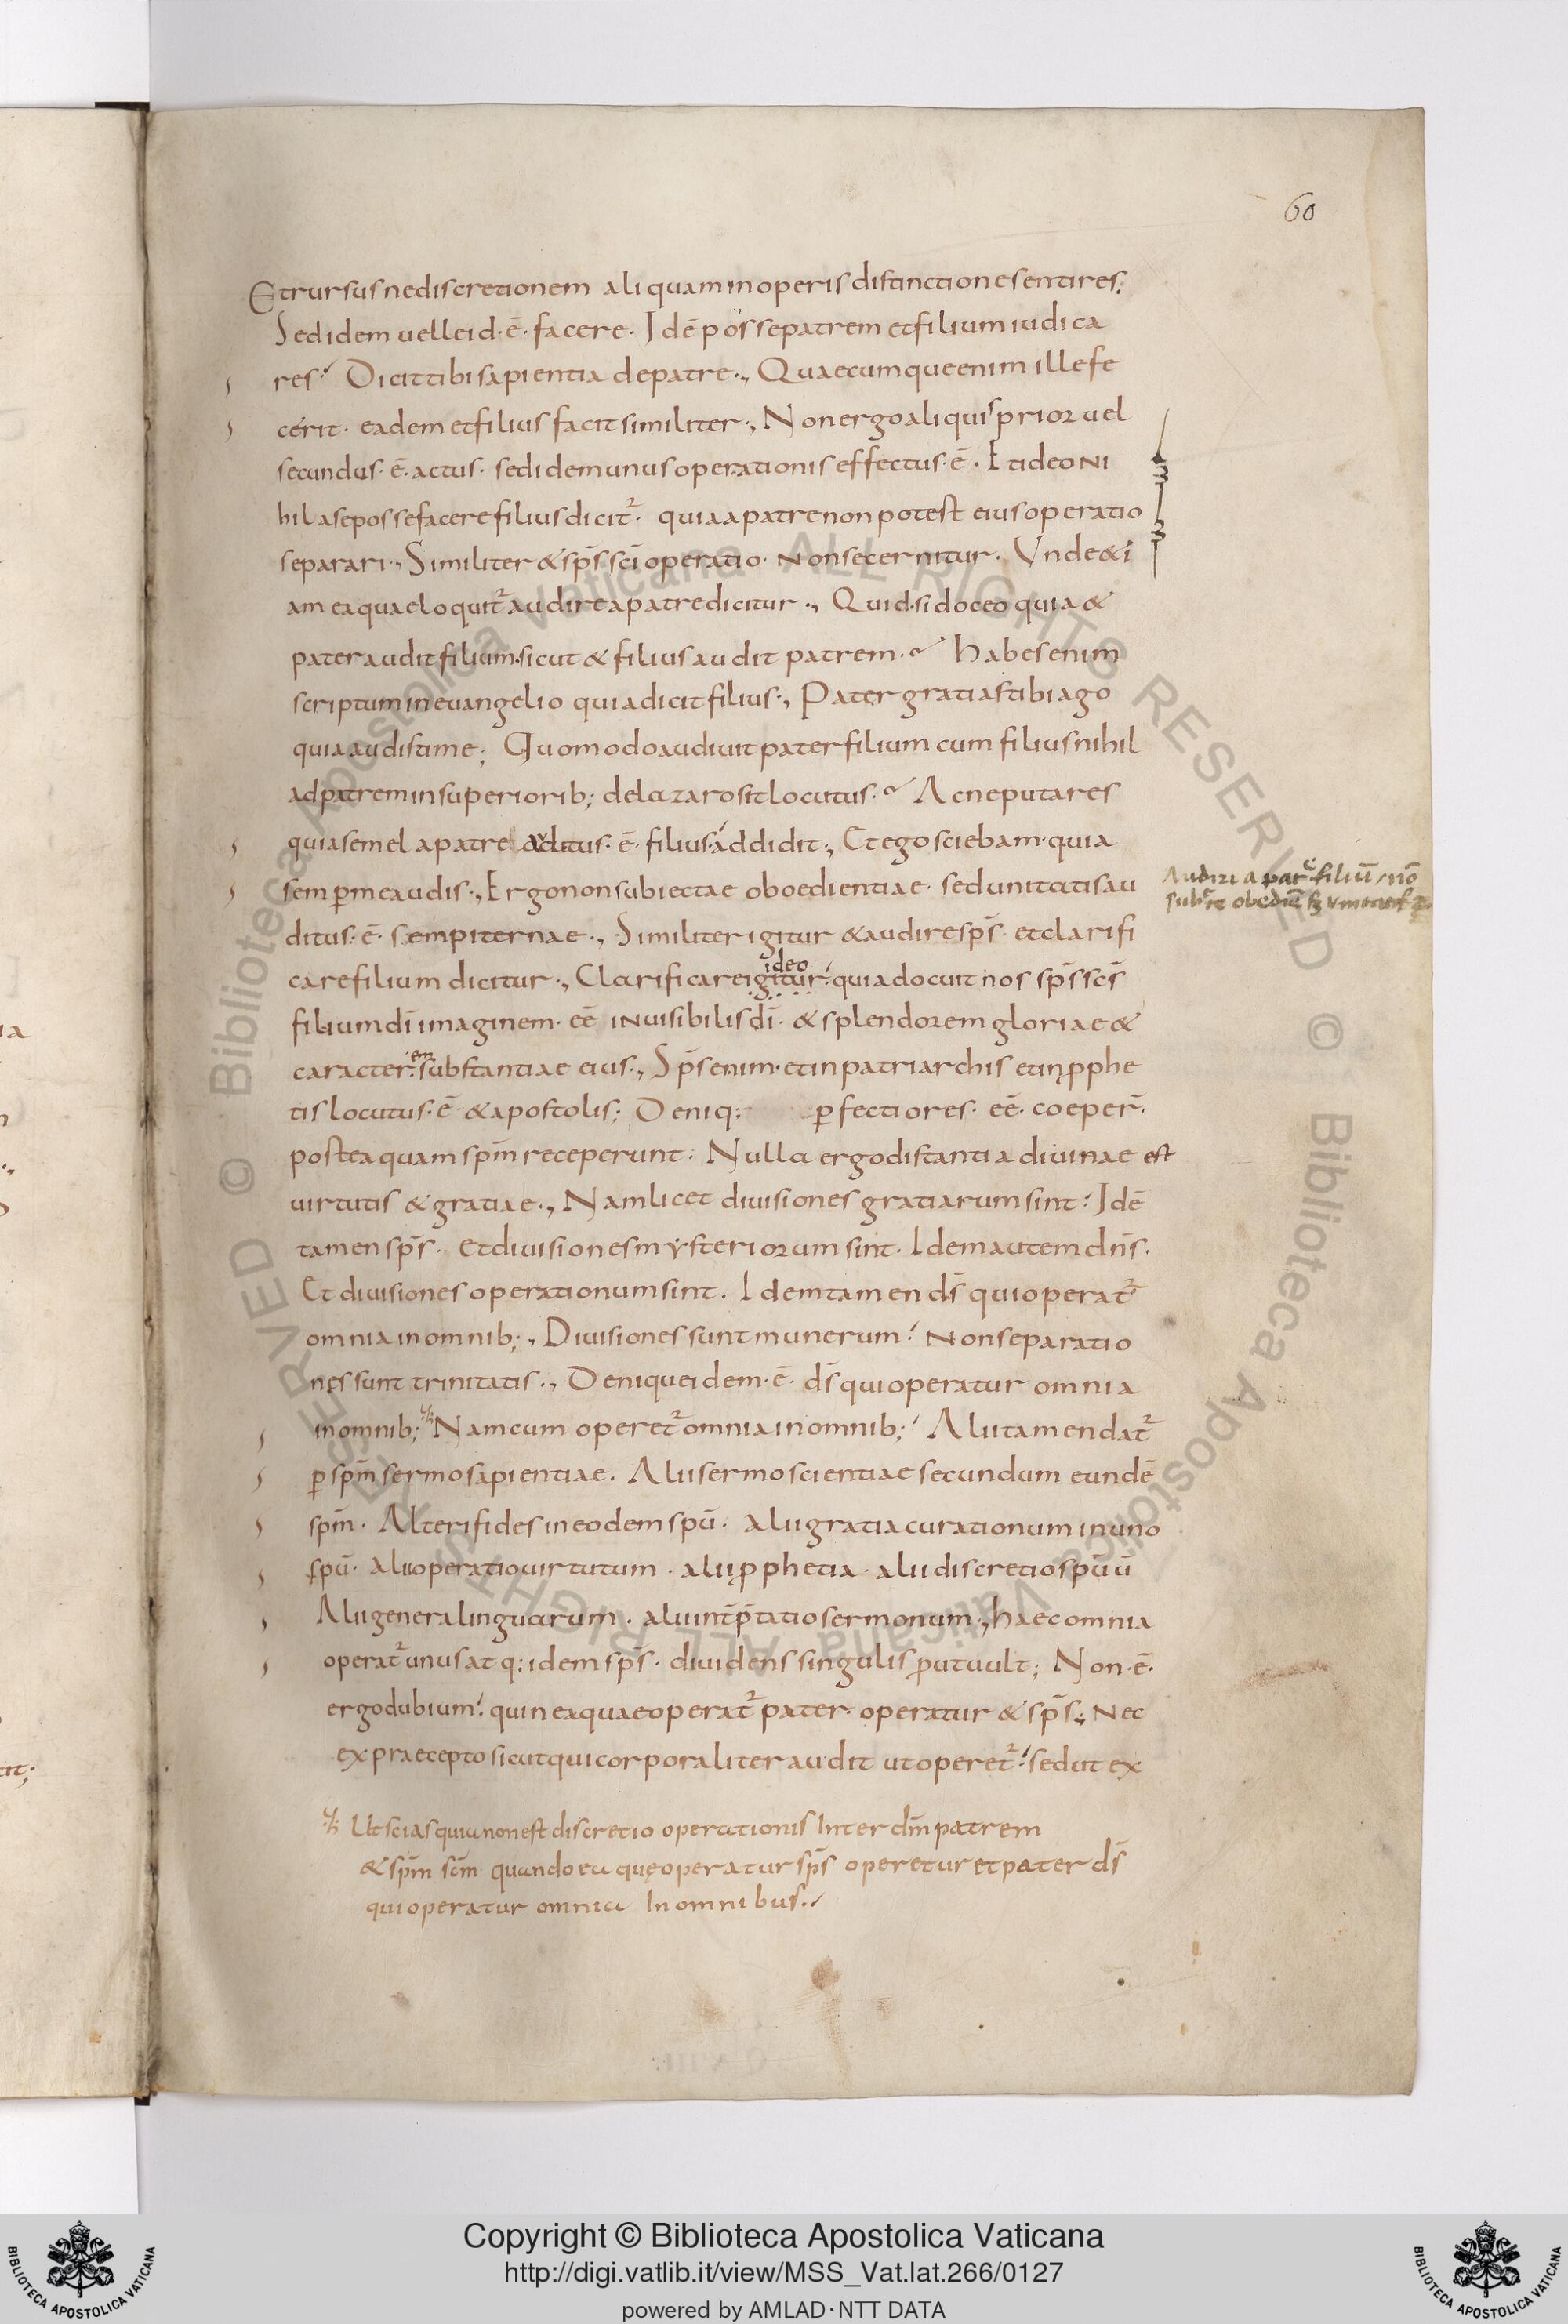 60
Et rursus ne discretionem aliquam in operis distinctione sentires;
Sed idem velle id·ē·facere· Idē posse patrem et filium iudica
res? Dicit tibi sapientia de patre., Quaecumque enim ille fe
cerit· eadem et filius facit similiter., Non ergo aliquis prior vel
secundus·ē·actus· sed idem unus operationis effectus·ē· Et ideo ni
hil a se posse facere filius dicit᷑· quia a patre non potest eius operatio
separari., Similiter & sp̄s sc̄i operatio· non secernitur· Unde & i
am ea quae loquit᷑ audire a patre dicitur., Quid·si doceo quia &
pater audit filium·sicut & filius audit patrem·? habes enim
scriptum in euangelio quia dicit filius., Pater gratias tibi ago
quia audisti me; Quomodo audiuit pater filium cum filius nihil
ad patrem in superiorib; de lazaro sit locutus·? Ac ne putares
quia semel a patre auditus·ē·filius· addidit., Et ego sciebam·quia
semꝑ me audis., Ergo non subiectae oboedientiae· sed unitatis au
Audiri a patre filiū / nō
ditus·ē· sempiternae., Similiter igitur & audire sp̄s· et clarifi
ideo
care filium dicitur., Clarificare igitur· quia docuit nos sp̄s sc̄s
filium dī imaginem· eē inuisibilis dī· & splendorem gloriae &
em
caracter· substantiae eius., Sp̄s enim·et in patriarchis et in ꝓphe
tis locutus·ē & apostolis; Deniq; ꝑfectiores· eē· coeper̄·
postea quam spm̄ receperunt; Nulla ergo distantia divinae est
virtutis & gratiae., Nam licet divisiones gratiarum sint? Idē
tamen sp̄s· et divisiones mysteriorum sint· Idem autem dn̄s·
Et divisiones operationum sint· Idem tamen ds̄ qui operat᷑
omnia in omnib;., Divisiones sunt munerum? non separatio
nes sunt trinitatis., Denique idem·ē· ds̄ qui operatur omnia
in omnib; Nam cum operet᷑ omnia in omnib;? Alii tamen dat᷑
ꝑ spm̄ sermo sapientiae· Alii sermo scientiae secundum eundē
spm̄· Alteri fides in eodem spū· alii gratia curationum in uno
spū· alii operatio virtutum· alii ꝓphetia· alii discretio spūū
Alii genera linguarum· alii int̄p̄tatio sermonum., haec omnia
operat᷑ unus atq; idem sp̄s· dividens singulis ꝓut vult; Non·ē·
ergo dubium? quin ea quae operat᷑ pater· operatur & sp̄s., Nec
ex praecepto sicut qui corporaliter audit ut operet᷑? sed ut ex
Ut scias quia non est discretio operationis Inter dm̄ patrem
& spm̄ scm̄ quando ea quę operatur sp̄s operetur et pater ds̄
qui operatur omnia In omnibus·
Copyright © Biblioteca Apostolica Vaticana
http://digi.vatlib.it/view/MSS_Vat.lat.266/0127
powered by AMLAD·NTT DATA
BIBLIOTECA APOSTOLICA VATICANA
BIBLIOTECA APOSTOLICA VATICANA
© Biblioteca Apostolica Vaticana ALL RIGHTS RESERVED
© Biblioteca Apostolica Vaticana ALL RIGHTS RESERVED